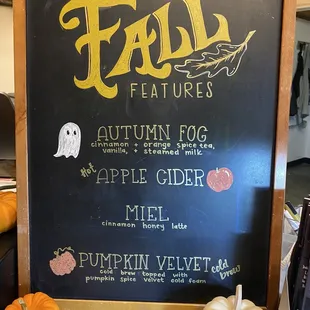 FALL
FEATURES
AUTUMN FOG
cinnamon + orange spice tea,
vanilla, + steamed milk
Hot APPLE CIDER
MIEL
cinnamon honey latte
PUMPKIN VELVET cold brew
cold brew topped with
pumpkin spice velvet cold foam